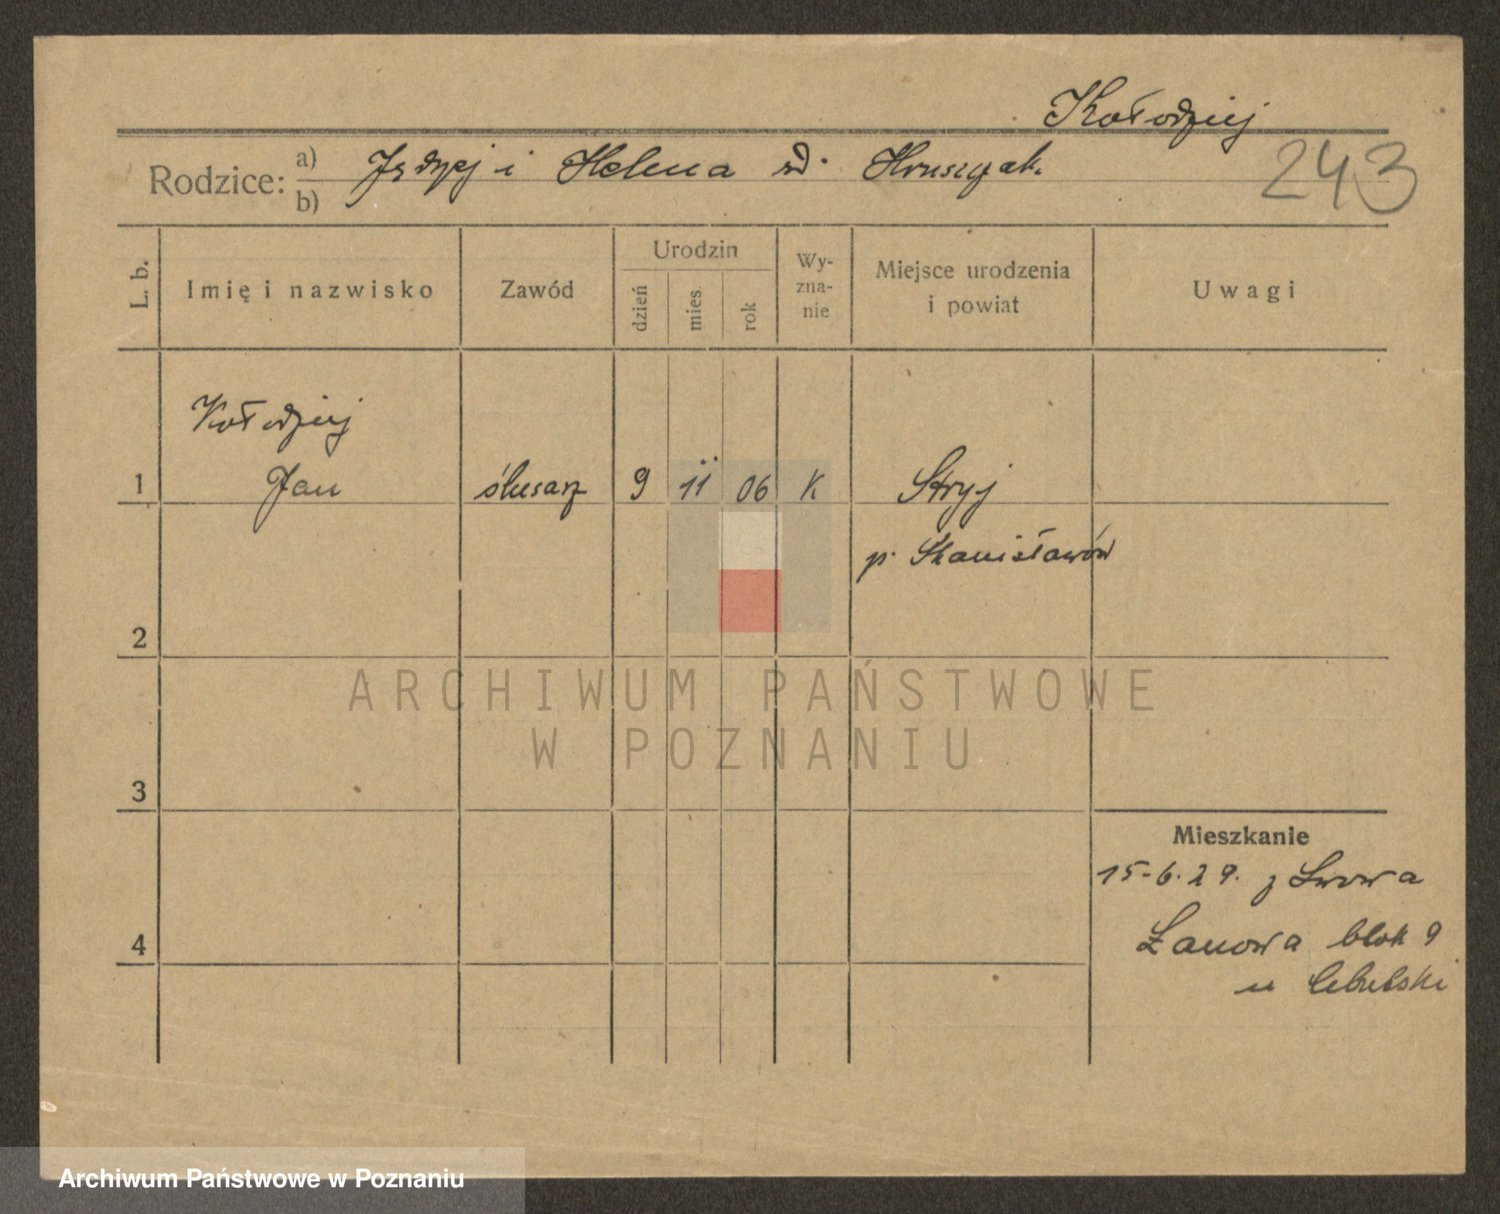 Kołodziej
Rodzice: a) Jędrzej i Helena zd. Hruszczak.
b)
243
L. b. Imię i nazwisko Zawód Urodzin dzień mies. rok Wy-zna-nie Miejsce urodzenia i powiat Uwagi
Kołodziej
1 Jan ślusarz 9 11 06 K Stryj
p. Stanisławów
2
ARCHIWUM PAŃSTWOWE
W POZNANIU
3
Mieszkanie
15-6.29. z Lwowa
4 Łanowa blok 9
u
Archiwum Państwowe w Poznaniu